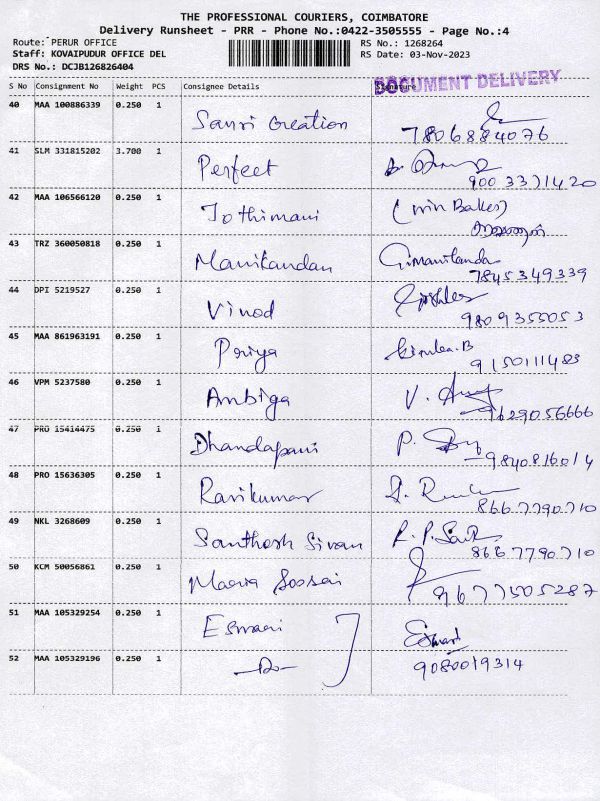 THE PROFESSIONAL COURIERS, COIMBATORE
Delivery Runsheet - PRR - Phone No.:0422-3505555 - Page No.:4
Route: PERUR OFFICE RS No.: 1268264
Staff: KOVAIPUDUR OFFICE DEL RS Date: 03-Nov-2023
DRS No.: DCJB126826404
DOCUMENT DELIVERY
S No Consignment No Weight PCS Consignee Details Signature
40 MAA 100886339 0.250 1
Sanri Creation 7806884076
41 SLM 331815202 3.700 1
Perfect 9003371420
42 MAA 106566120 0.250 1
Jothimani (Win Bakes)
43 TRZ 360050818 0.250 1
Manikandan G.manikanda
7845349339
44 DPI 5219527 0.250 1
Vinod
9809355053
45 MAA 861963191 0.250 1
Priya
9150111483
46 VPM 5237580 0.250 1
Ambiga V.
9629056666
47 PRO 15414475 0.250 1
Dhandapani P.
9840816014
48 PRO 15636305 0.250 1
Ravikumar
8667790710
49 NKL 3268609 0.250 1
Santhosh Sivan
8667790710
50 KCM 50056861 0.250 1
Maria Soosai 9677505287
51 MAA 105329254 0.250 1
Eswari
52 MAA 105329196 0.250 1
-Do- 9080019314